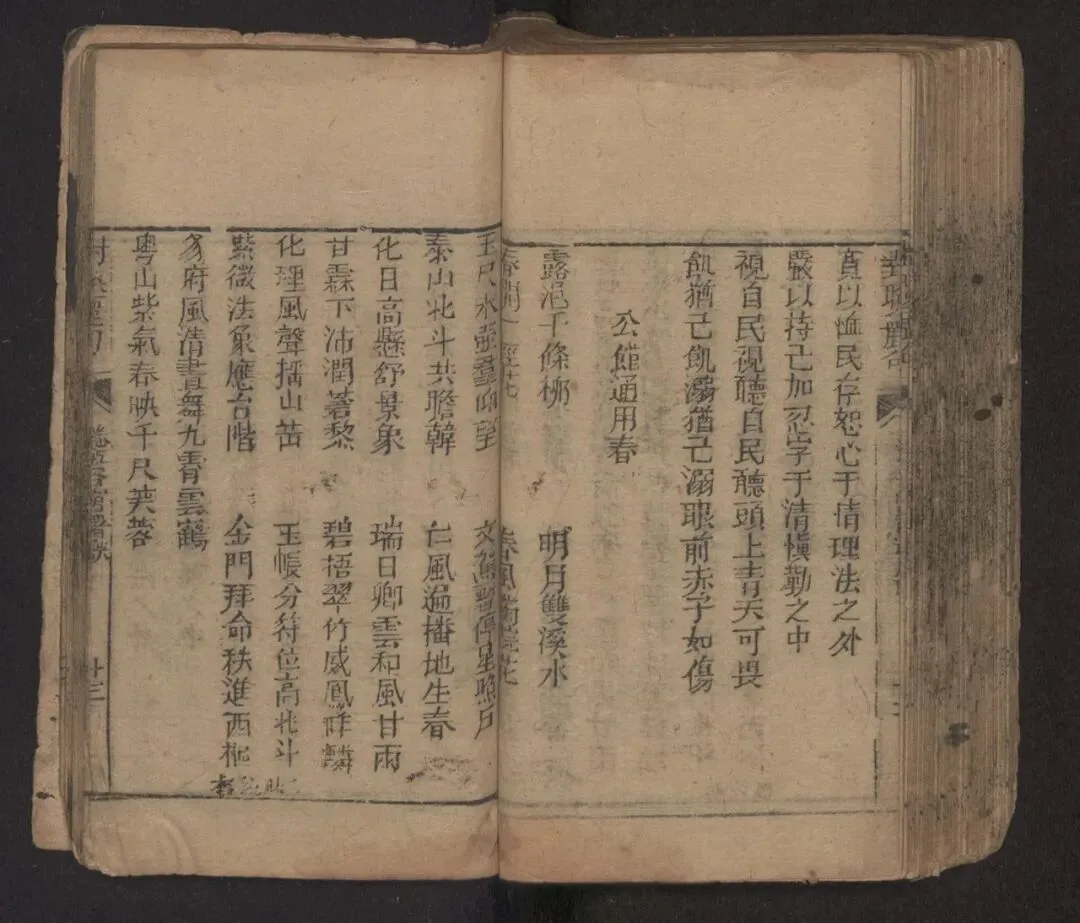 寬以恤民存恕心于情理法之外
嚴以持己加忍字于清愼勤之中
視自民視聽自民聽頭上青天可畏
飢猶己飢溺猶己溺眼前赤子如傷
公館通用春
露浥千條柳 明月雙溪水
春風
玉尺氷壺羣仰望 文 暫停星照戶
泰山北斗共瞻韓 仁風遍播地生春
化日高懸舒景象 瑞日卿雲和風甘雨
甘霖下沛潤蒼黎 碧梧翠竹威鳳祥麟
化理風聲搖山岳 玉帳分符位高北斗
紫微法象應台階 金門拜命秩進西樞
府風清晝舞九霄雲鶴
粵山紫氣春映千尺芙蓉
廿三